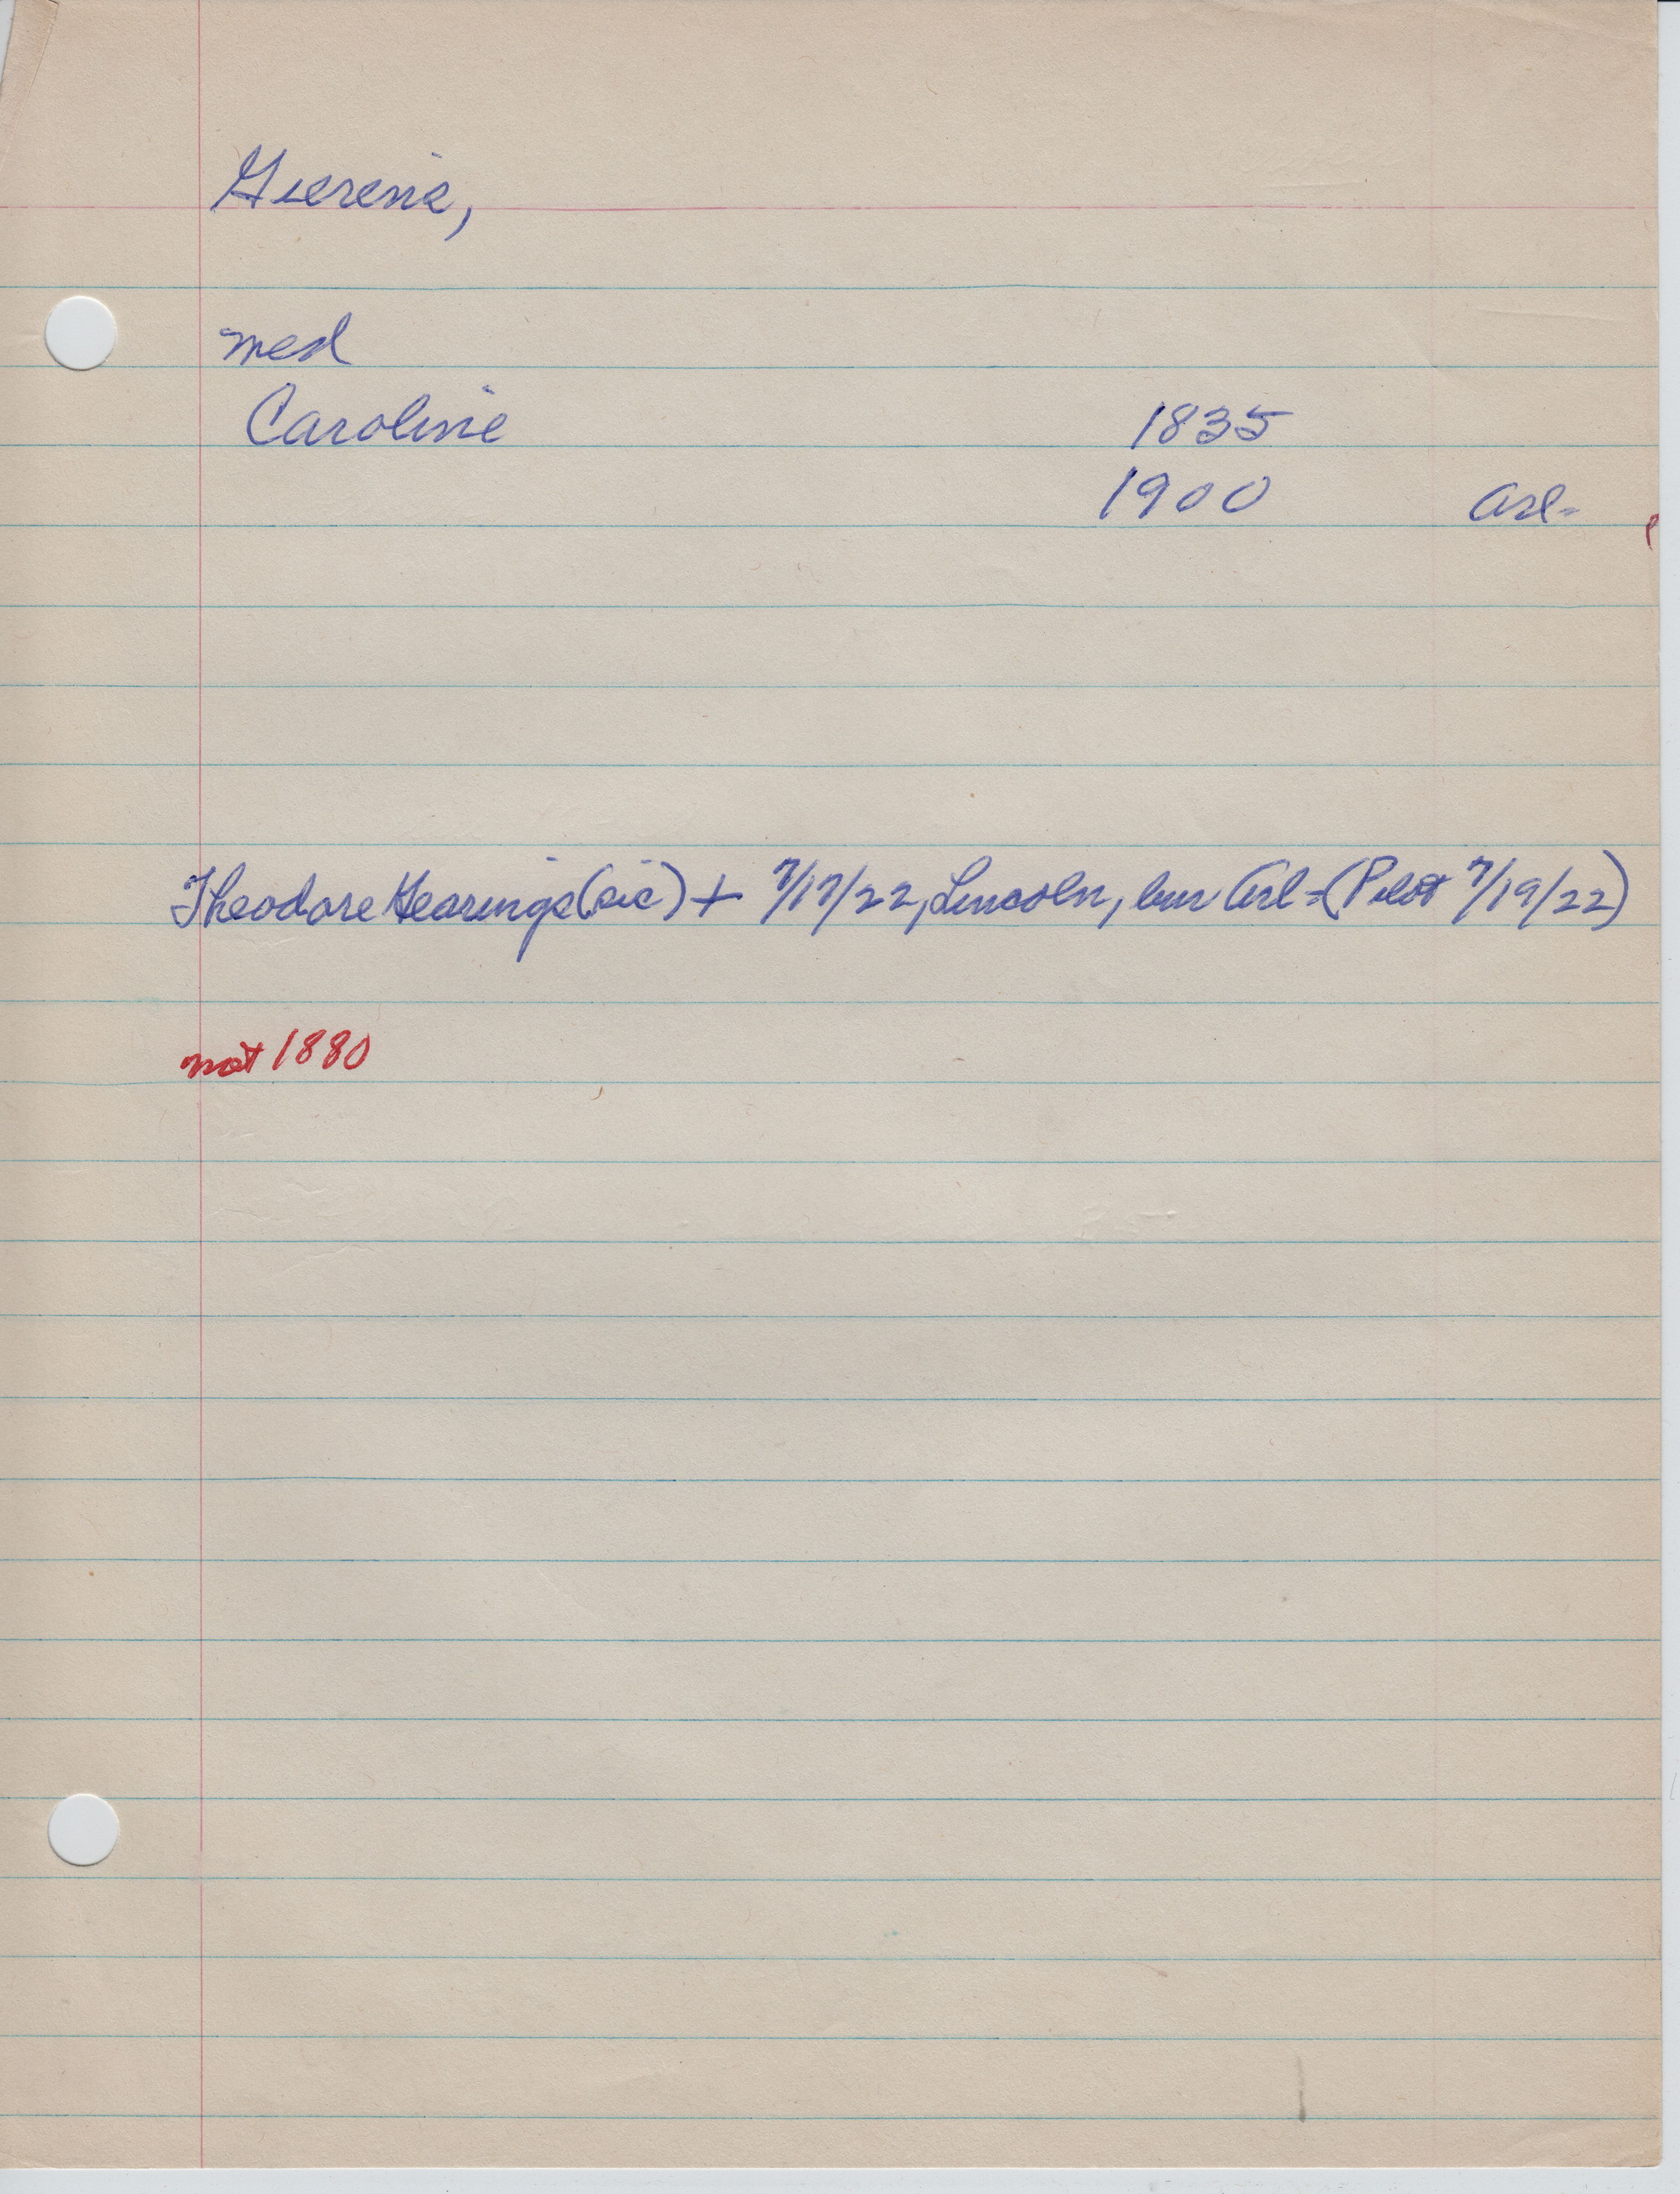 Gierenie,
med
Caroline 1835
1900 Arl.
Theodore Gearings (sic) + 7/17/22, Lincoln, bur Arl. (Pilot 7/19/22)
not 1880